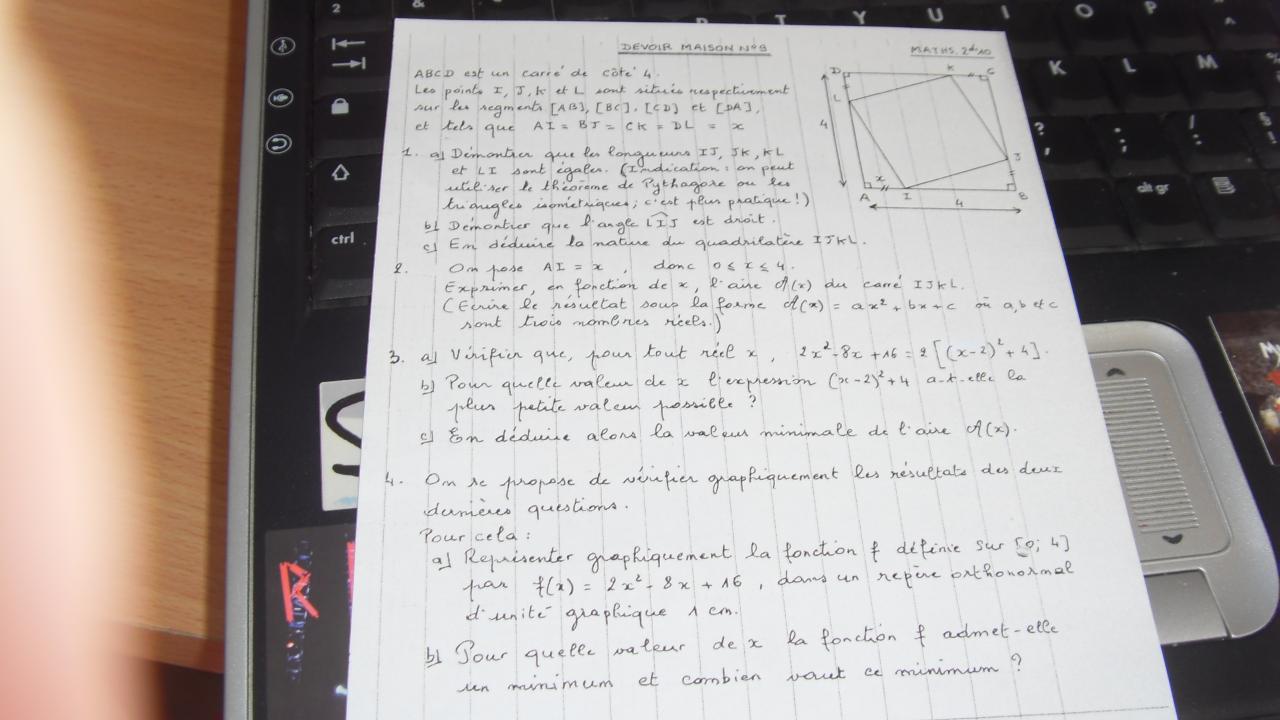 DEVOIR MAISON N°9
MATHS. 2de 10
ABCD est un carré de côté 4.
Les points I, J, K et L sont situés respectivement
sur les segments [AB], [BC], [CD] et [DA],
et tels que AI = BJ = CK = DL = x
1. a) Démontrer que les longueurs IJ, JK, KL
et LI sont égales. (Indication : on peut
utiliser le théorème de Pythagore ou les
triangles isométriques; c'est plus pratique !)
b) Démontrer que l'angle LIJ est droit.
c) En déduire la nature du quadrilatère IJKL.
2. On pose AI = x, donc 0 ≤ x ≤ 4.
Exprimer, en fonction de x, l'aire A(x) du carré IJKL.
(Ecrire le résultat sous la forme A(x) = ax² + bx + c où a, b et c
sont trois nombres réels.)
3. a) Vérifier que, pour tout réel x, 2x² - 8x + 16 = 2[(x-2)² + 4].
b) Pour quelle valeur de x l'expression (x-2)² + 4 a-t-elle la
plus petite valeur possible ?
c) En déduire alors la valeur minimale de l'aire A(x).
4. On se propose de vérifier graphiquement les résultats des deux
dernières questions.
Pour cela :
a) Représenter graphiquement la fonction f définie sur [0; 4]
par f(x) = 2x² - 8x + 16, dans un repère orthonormal
d'unité graphique 1 cm.
b) Pour quelle valeur de x la fonction f admet-elle
un minimum et combien vaut ce minimum ?
D K C
L
4
J
x
A I B
4
2
&
T Y U I O P
K L M
?
;
/
!
alt gr
ctrl
R